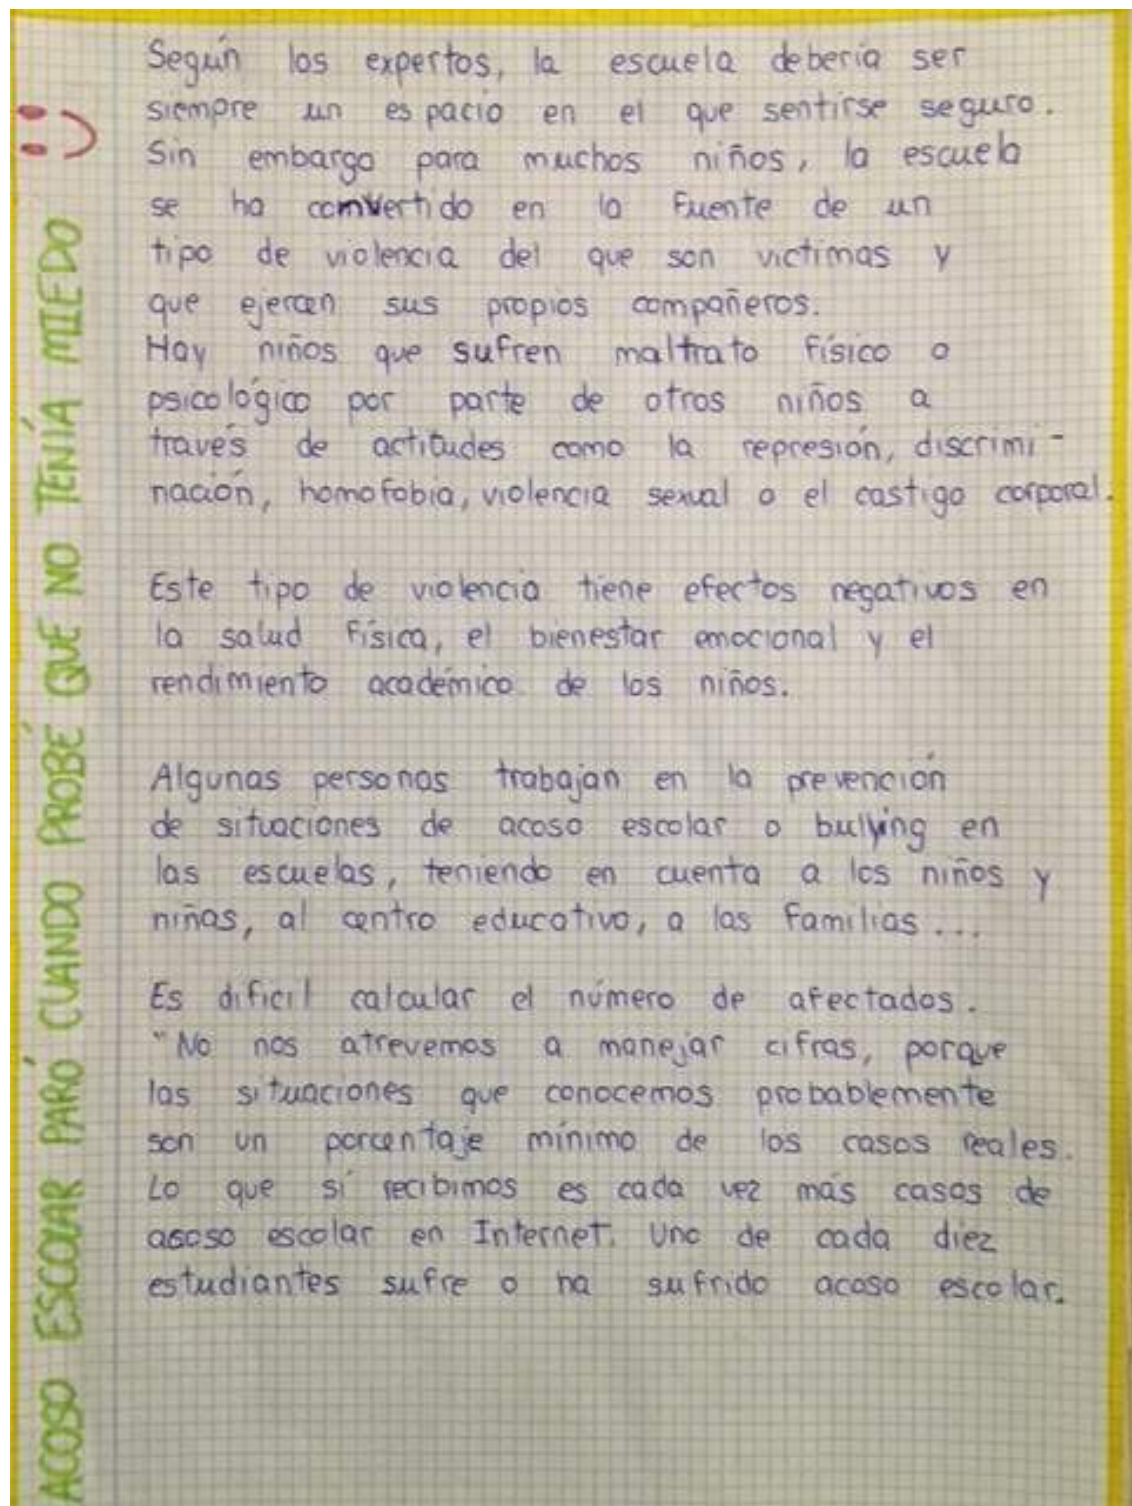 ACOSO ESCOLAR PARÓ CUANDO PROBÉ QUE NO TENÍA MIEDO :)
Según los expertos, la escuela debería ser
siempre un espacio en el que sentirse seguro.
Sin embargo para muchos niños, la escuela
se ha comvertido en la fuente de un
tipo de violencia del que son victimas y
que ejercen sus propios compañeros.
Hay niños que sufren maltrato físico o
psicológico por parte de otros niños a
través de actitudes como la represión, discrimi-
nación, homofobia, violencia sexual o el castigo corporal.
Este tipo de violencia tiene efectos negativos en
la salud física, el bienestar emocional y el
rendimiento académico de los niños.
Algunas personas trabajan en la prevención
de situaciones de acoso escolar o bullying en
las escuelas, teniendo en cuenta a los niños y
niñas, al centro educativo, a las familias...
Es dificil calcular el número de afectados.
"No nos atrevemos a manejar cifras, porque
las situaciones que conocemos probablemente
son un porcentaje mínimo de los casos reales.
Lo que sí recibimos es cada vez más casos de
acoso escolar en Internet. Uno de cada diez
estudiantes sufre o ha sufrido acoso escolar.